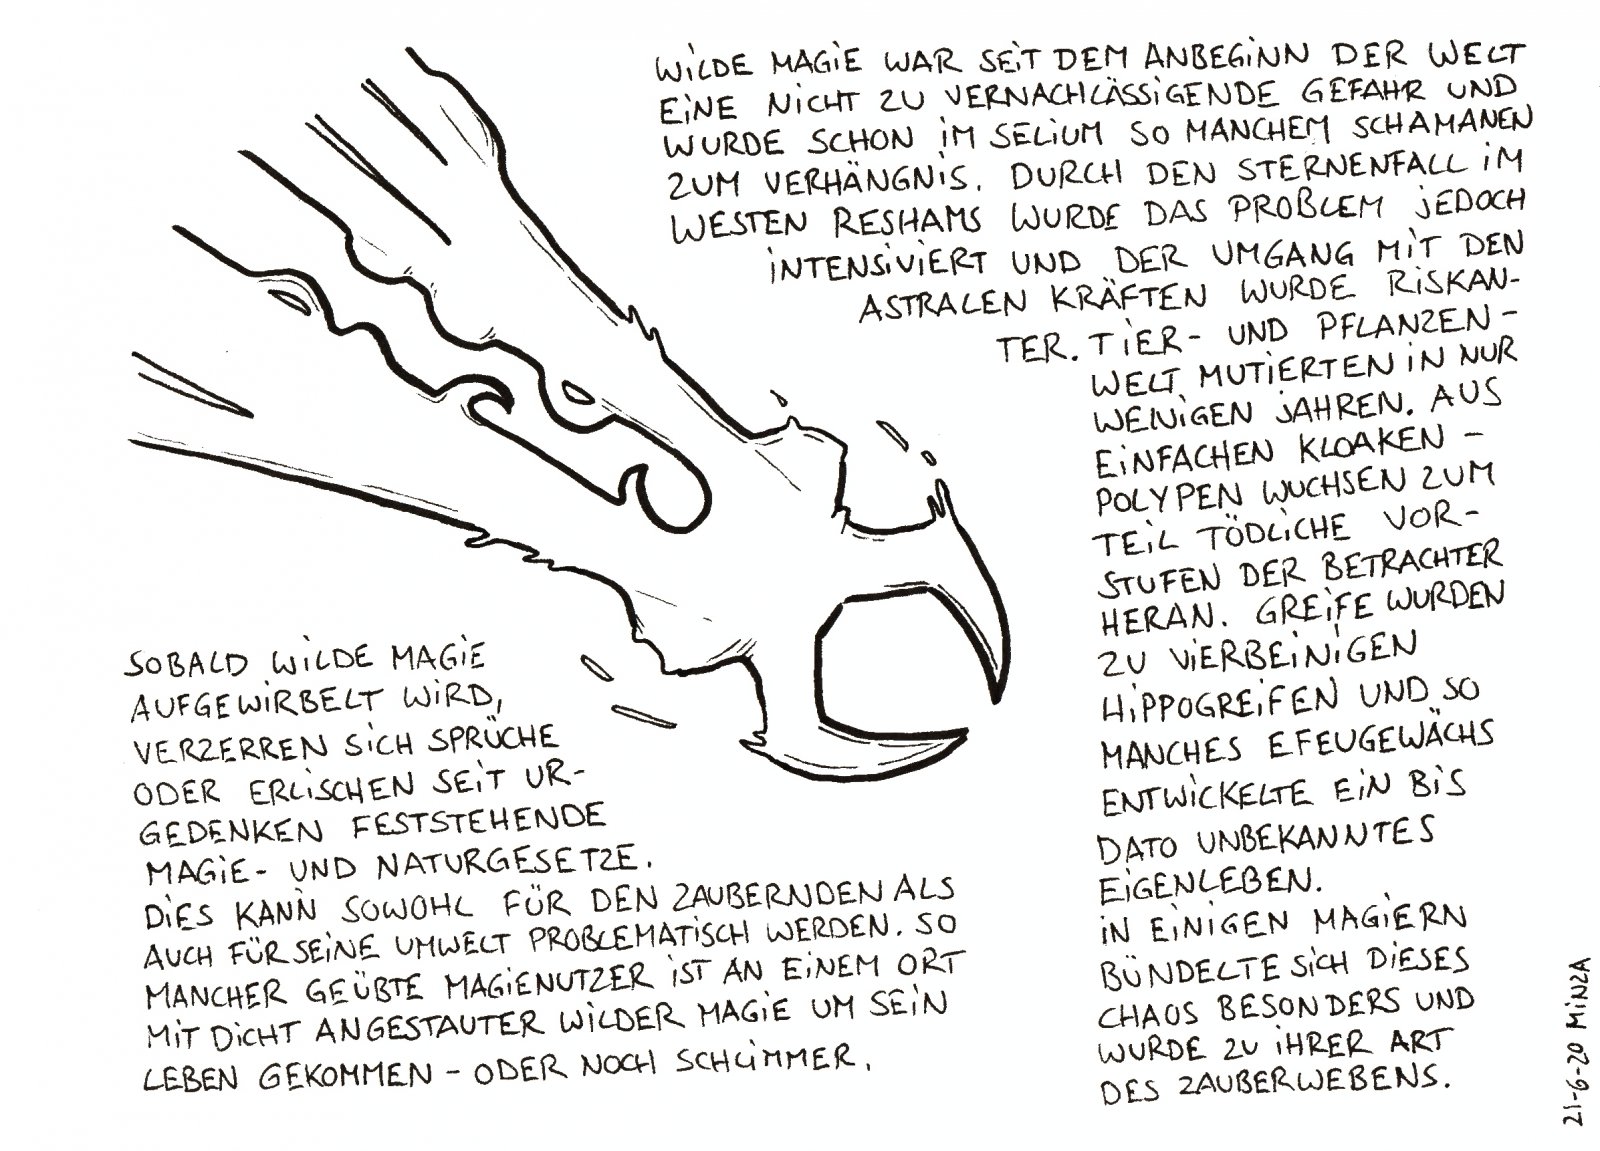 WILDE MAGIE WAR SEIT DEM ANBEGINN DER WELT
EINE NICHT ZU VERNACHLÄSSIGENDE GEFAHR UND
WURDE SCHON IM SELIUM SO MANCHEM SCHAMANEN
ZUM VERHÄNGNIS. DURCH DEN STERNENFALL IM
WESTEN RESHAMS WURDE DAS PROBLEM JEDOCH
INTENSIVIERT UND DER UMGANG MIT DEN
ASTRALEN KRÄFTEN WURDE RISKAN-
TER. TIER- UND PFLANZEN-
WELT MUTIERTEN IN NUR
WENIGEN JAHREN. AUS
EINFACHEN KLOAKEN-
POLYPEN WUCHSEN ZUM
TEIL TÖDLICHE VOR-
STUFEN DER BETRACHTER
HERAN. GREIFE WURDEN
ZU VIERBEINIGEN
HIPPOGREIFEN UND SO
MANCHES EFEUGEWÄCHS
ENTWICKELTE EIN BIS
DATO UNBEKANNTES
EIGENLEBEN.
IN EINIGEN MAGIERN
BÜNDELTE SICH DIESES
CHAOS BESONDERS UND
WURDE ZU IHRER ART
DES ZAUBERWEBENS.
SOBALD WILDE MAGIE
AUFGEWIRBELT WIRD,
VERZERREN SICH SPRÜCHE
ODER ERLISCHEN SEIT UR-
GEDENKEN FESTSTEHENDE
MAGIE- UND NATURGESETZE.
DIES KANN SOWOHL FÜR DEN ZAUBERNDEN ALS
AUCH FÜR SEINE UMWELT PROBLEMATISCH WERDEN. SO
MANCHER GEÜBTE MAGIENUTZER IST AN EINEM ORT
MIT DICHT ANGESTAUTER WILDER MAGIE UM SEIN
LEBEN GEKOMMEN - ODER NOCH SCHLIMMER.
21-6-20 MINZA